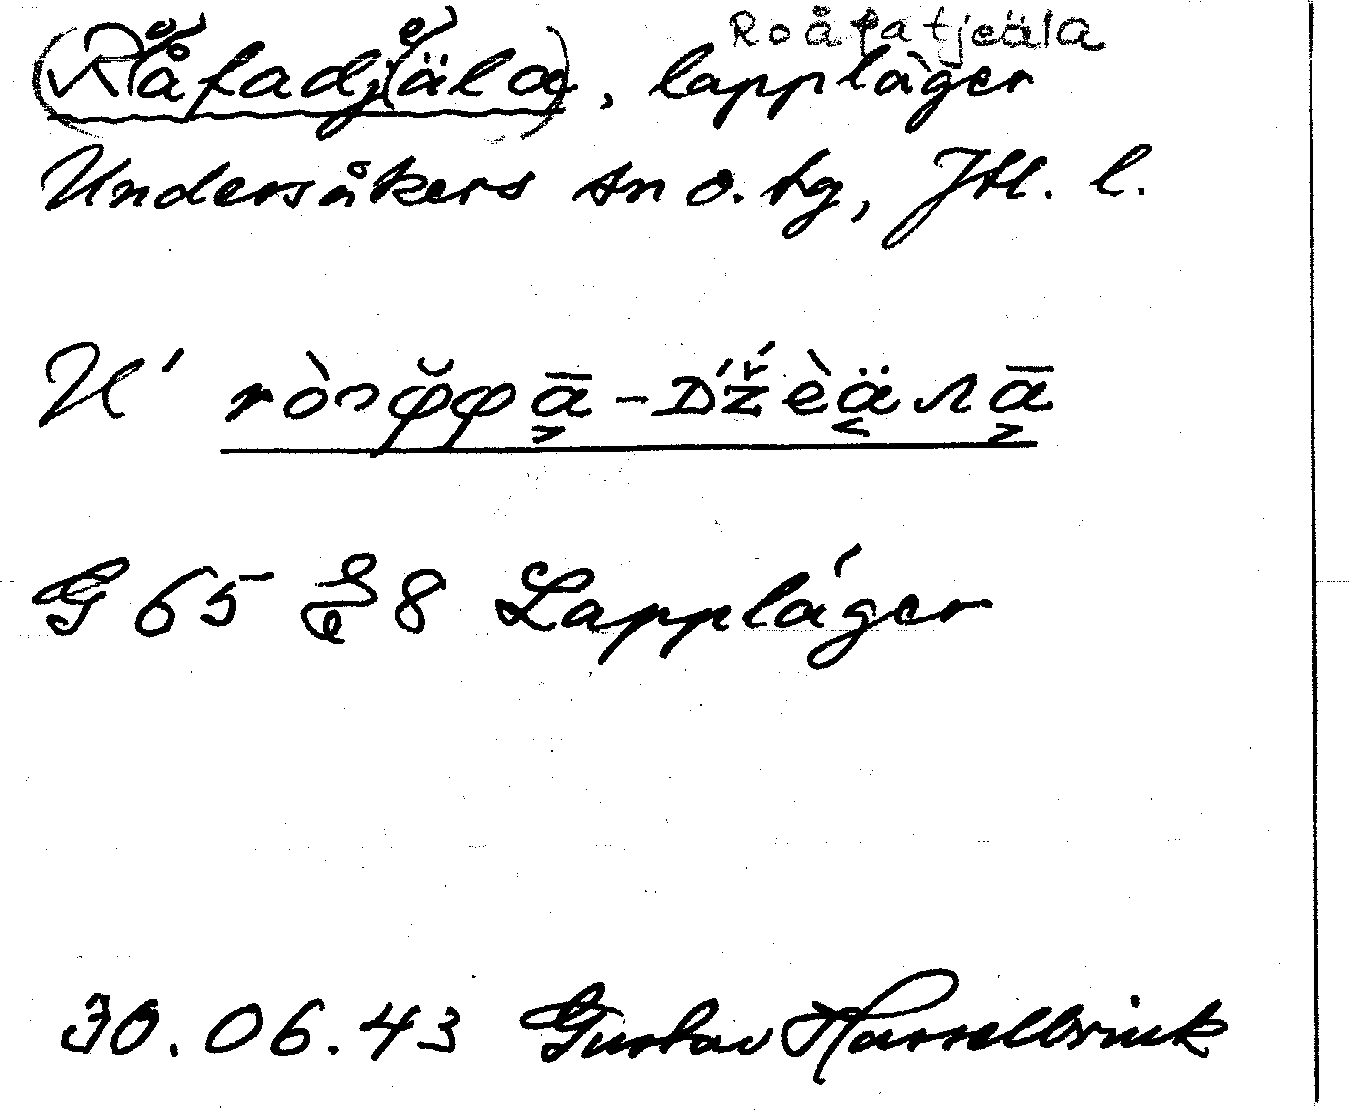 Roåfatjeäla
(Roåfadjeäla), lappläger
Undersåkers sn o. tg, Jtl. l.
G 65 8 Lappläger
30.06.43 Gustav Hasselbrink